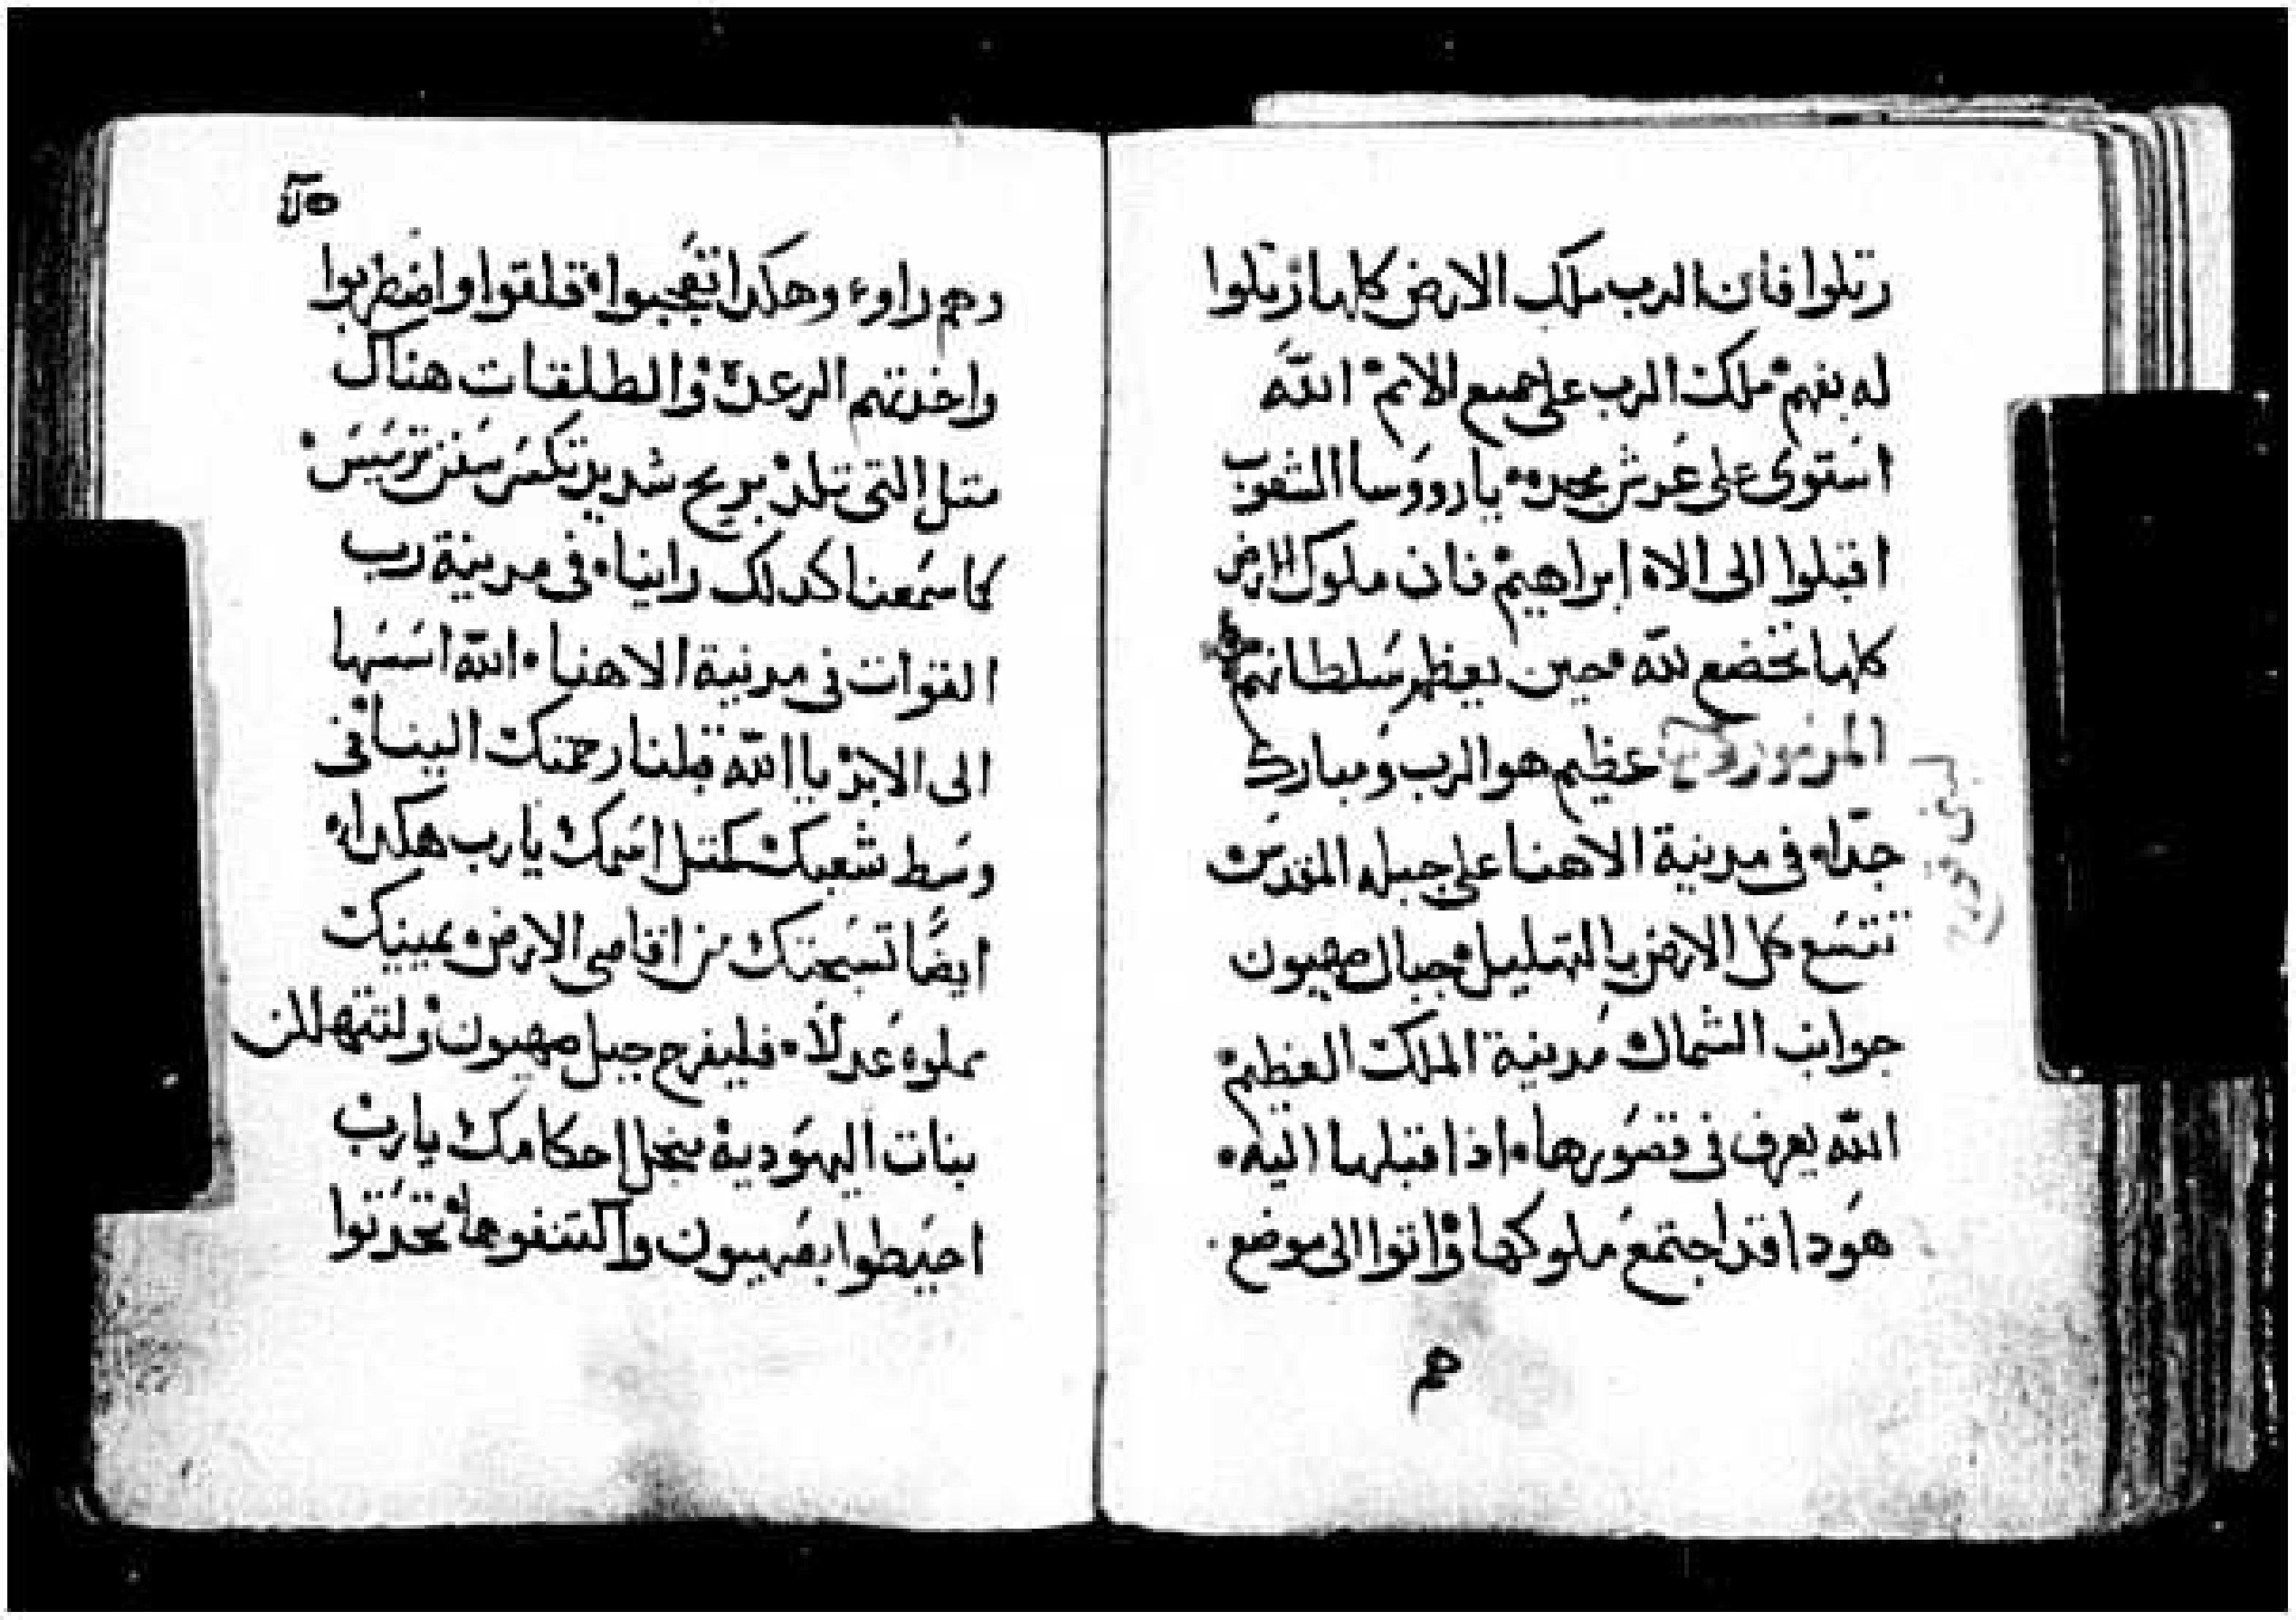 رتلوا فان الرب ملك الارض كلها رتلوا
له بفهم ملك الرب على جميع الامم الله
استوى على عرش مجده يا رووسا الشعوب
اقبلوا الى الاه ابراهيم فان ملوك الارض
كلها تخضع لله حين يعظم سلطانهم
المزمور عظيم هو الرب ومبارك
لبنى قورح
جدًا في مدينة الاهنا على جبله المقدس
تتسع كل الارض بالتهليل جبال صهيون
جوانب الشمال مدينة الملك العظيم
الله يعرف في قصورها اذا قبلها اليه
هودا قد اجتمع ملوكها واتوا الى موضع
هم
وهم راوء وهكدا تعجبوا قلقوا واضطربوا
واخدتهم الرعدة والطلقات هناك
متل التي تلد بريح شديد تكسر سفن ترسيس
كما سمعنا كدلك راينا في مدينة رب
القوات في مدينة الاهنا الله اسسها
الى الابد يا الله قبلنا رحمتك الينا في
وسط شعبك كمتل اسمك يا رب هكدا
ايضًا تسبحتك من اقاصى الارض يمينك
مملوه عدلًا فليفرح جبل صهيون ولتتهللن
بنات اليهودية من اجل احكامك يا رب
احيطوا بصهيون واكتنفوها تحدتوا